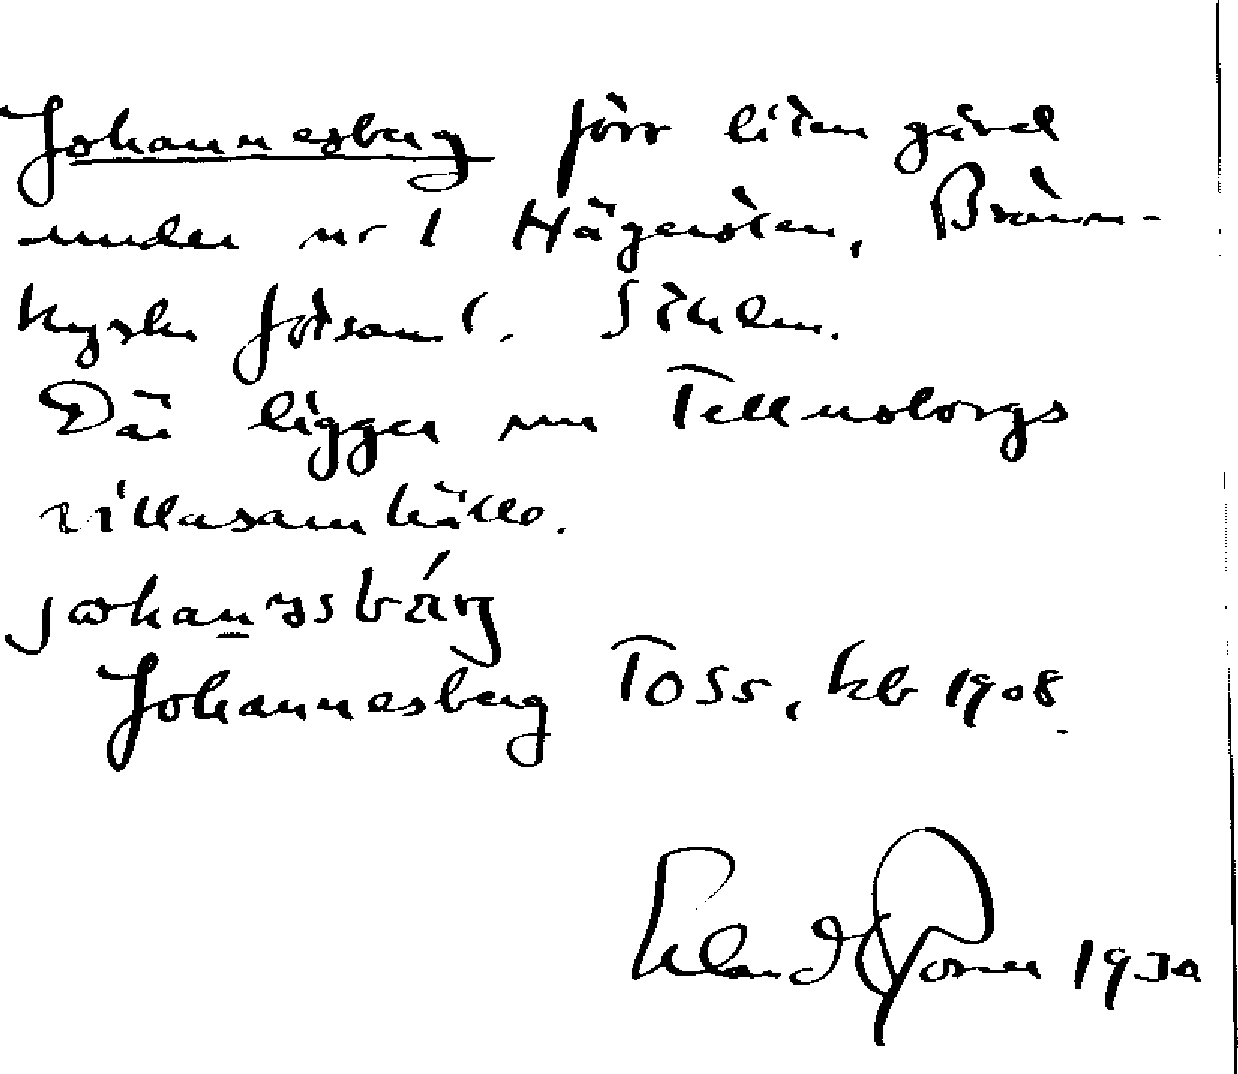 Johannesberg förr liten gård
under nr 1 Hägersten, Bränn-
kyrka församl. Sthlm.
Där ligger nu Tellusborgs
villasamhälle.
Johannesberg Toss, kb 1908
Erland Rosner 193